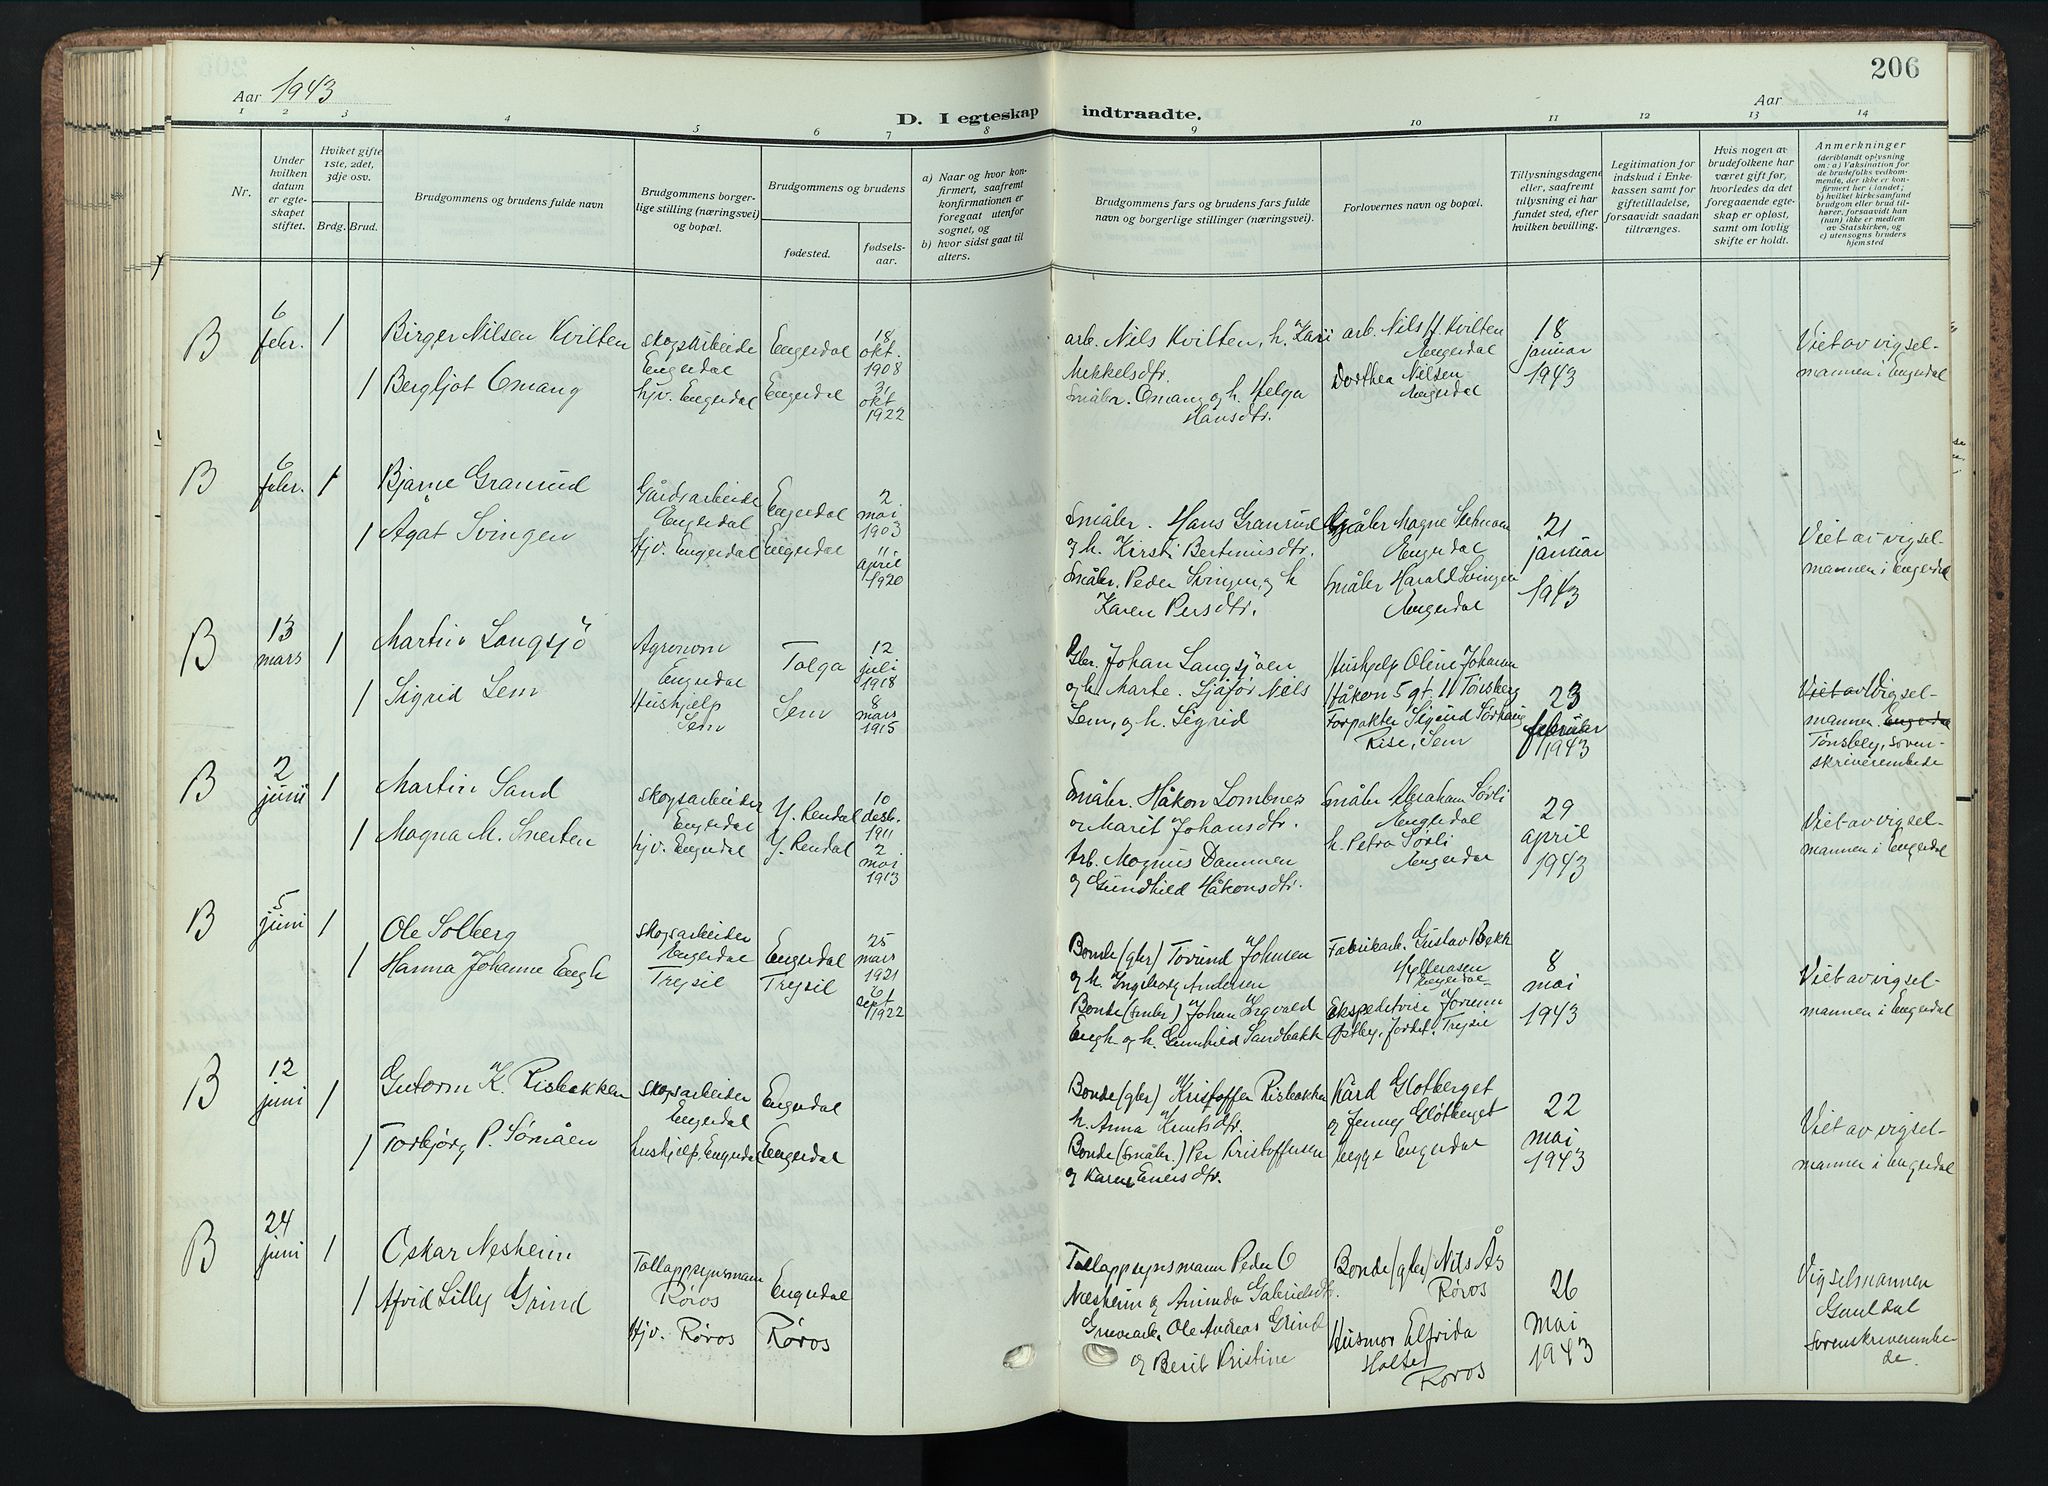 206
Aar 1943
D. I egteskap indtraadte.
Aar
1 2 3 4 5 6 7 8 9 10 11 12 13 14
Nr.
Under hvilken datum er egteskapet stiftet.
Hvilket gifte 1ste, 2det, 3dje osv.
Brdg. Brud.
Brudgommens og brudens fulde navn
Brudgommens borgerlige stilling (næringsvei) og bopæl.
Brudgommens og brudens
fødested.
fødselsaar.
a) Naar og hvor konfirmert, saafremt konfirmationen er foregaat utenfor sognet, og
b) hvor sidst gaat til alters.
Brudgommens fars og brudens fars fulde navn og borgerlige stillinger (næringsvei).
Forlovernes navn og bopæl.
Tillysningsdagene eller, saafremt tillysning ei har fundet sted, efter hvilken bevilling.
Legitimation for indskud i Enkekassen samt for giftetilladelse, forsaavidt saadan tiltrænges.
Hvis nogen av brudefolkene har været gift før, hvorledes da det foregaaende egteskap er opløst, samt om lovlig skifte er holdt.
Anmerkninger
(deriblandt oplysning om: a) Vaksination for de brudefolks vedkommende, der ikke er konfirmert her i landet; b) hvilket kirkesamfund brudgom eller brud tilhører, forsaavidt han (hun) ikke er medlem av Statskirken, og c) utensogns bruders hjemsted
B 6 febr. 1 Birger Nilsen Kvilten
skogsarbeide Engerdal
Engerdal 18 okt. 1908
1 Bergljot Omang
hjv. Engerdal
Engerdal 31 okt 1922
arb. Nils Kvilten, h. Kari
Mikkelsdtr.
Småbr. Omang og h. Helga
Hansdtr.
arb. Nils H. Kvilten
Engerdal
Dorthea Nilsen
Engerdal
18 januar 1943
Viet av vigsel-
mannen i Engerdal
B 6 febr. 1 Bjarne Granrud
Gårdsarbeide Engerdal
Engerdal 2 mai 1903
1 Agat Svingen
Hjv. Engerdal
Engerdal 11 april 1920
Småbr. Hans Granrud
og h. Kirsti Bertinusdtr.
Småbr. Peder Svingen, og h
Karen Persdtr.
Småbr Magne
Engerdal
Småbr Harald Svingen
Engerdal
21 januar 1943
Viet av vigsel-
mannen i Engerdal
B 13 mars 1 Martin Langsjø
Agronom Engerdal
Tolga 12 juli 1918
1 Sigrid Sem
Hushjelp Sem
Sem 8 mars 1915
Gbr. Johan Langsjøen
og h. Marte. Sjåfør Nils
Sem, og h. Sigrid
Hushjelp Oline Johansen
Håkon 5 gt. 11 Tønsberg
Forpakter Sigurd
Rise, Sem
23 februar 1943
Viet av Vigsel-
mannen i Engerdal
Tønsberg, soren-
skriverembede
B 2 juni 1 Martin Sand
skogsarbeider Engerdal
Y. Rendal 10 desb. 1911
1 Magna M. Snerten
hjv. Engerdal
Y. Rendal 2 mai 1913
Småbr. Håkon Lombnes
og Marit Johansdtr.
Arb. Magnus Dammen
og Gundhild Håkonsdtr.
Småbr Abraham Sørli
Engerdal
h. Petra Sørli
Engerdal
29 april 1943
Viet av vigsel-
mannen i Engerdal
B 5 juni 1 Ole Solberg
skogsarbeider Engerdal
Engerdal 25 mars 1921
1 Hanna Johanne Engh
Trysil
Trysil 6 sept 1922
Bonde (gbr) Tovund Johnsen
og h. Ingeborg Andersen
Bonde (småbr) Johan Ingvald
Engh og h. Gunhild Sandbakk
Fabrikarb. Gustav Bekk
Hylleråsen
Engerdal
Østby, Jordet, Trysil
8 mai 1943
Viet av vigsel-
mannen i Engerdal
B 12 juni 1 Gutorm K. Risbakken
skogsarbeider Engerdal
Engerdal
1 Torbjørg P. Sømåen
hushjelp, Engerdal
Engerdal
Bonde (gbr) Kristoffer Risbakken
h. Anna Knutsdtr.
Bonde (småbr.) Per Kristoffersen
og Karen Einersdtr.
Kård Gløtberget
og Jenny Gløtberget
begge Engerdal
22 mai 1943
Viet av vigsel-
mannen i Engerdal
B 24 juni 1 Oskar Nesheim
Tolloppsynsmann Røros
Engerdal
1 Afvid Lilly Grind
Hjv. Røros
Røros
Tolloppsynsmann Peder O
Nesheim og Arinda Gabrielsdtr.
Gruvearb. Ole Andreas Grind
og Berit Kristine
Bonde (gbr) Nils Ås
Røros
Husmor Elfrida
Holte
Røros
26 mai 1943
Vigselmannen
Gauldal
sorenskriverembe-
de.